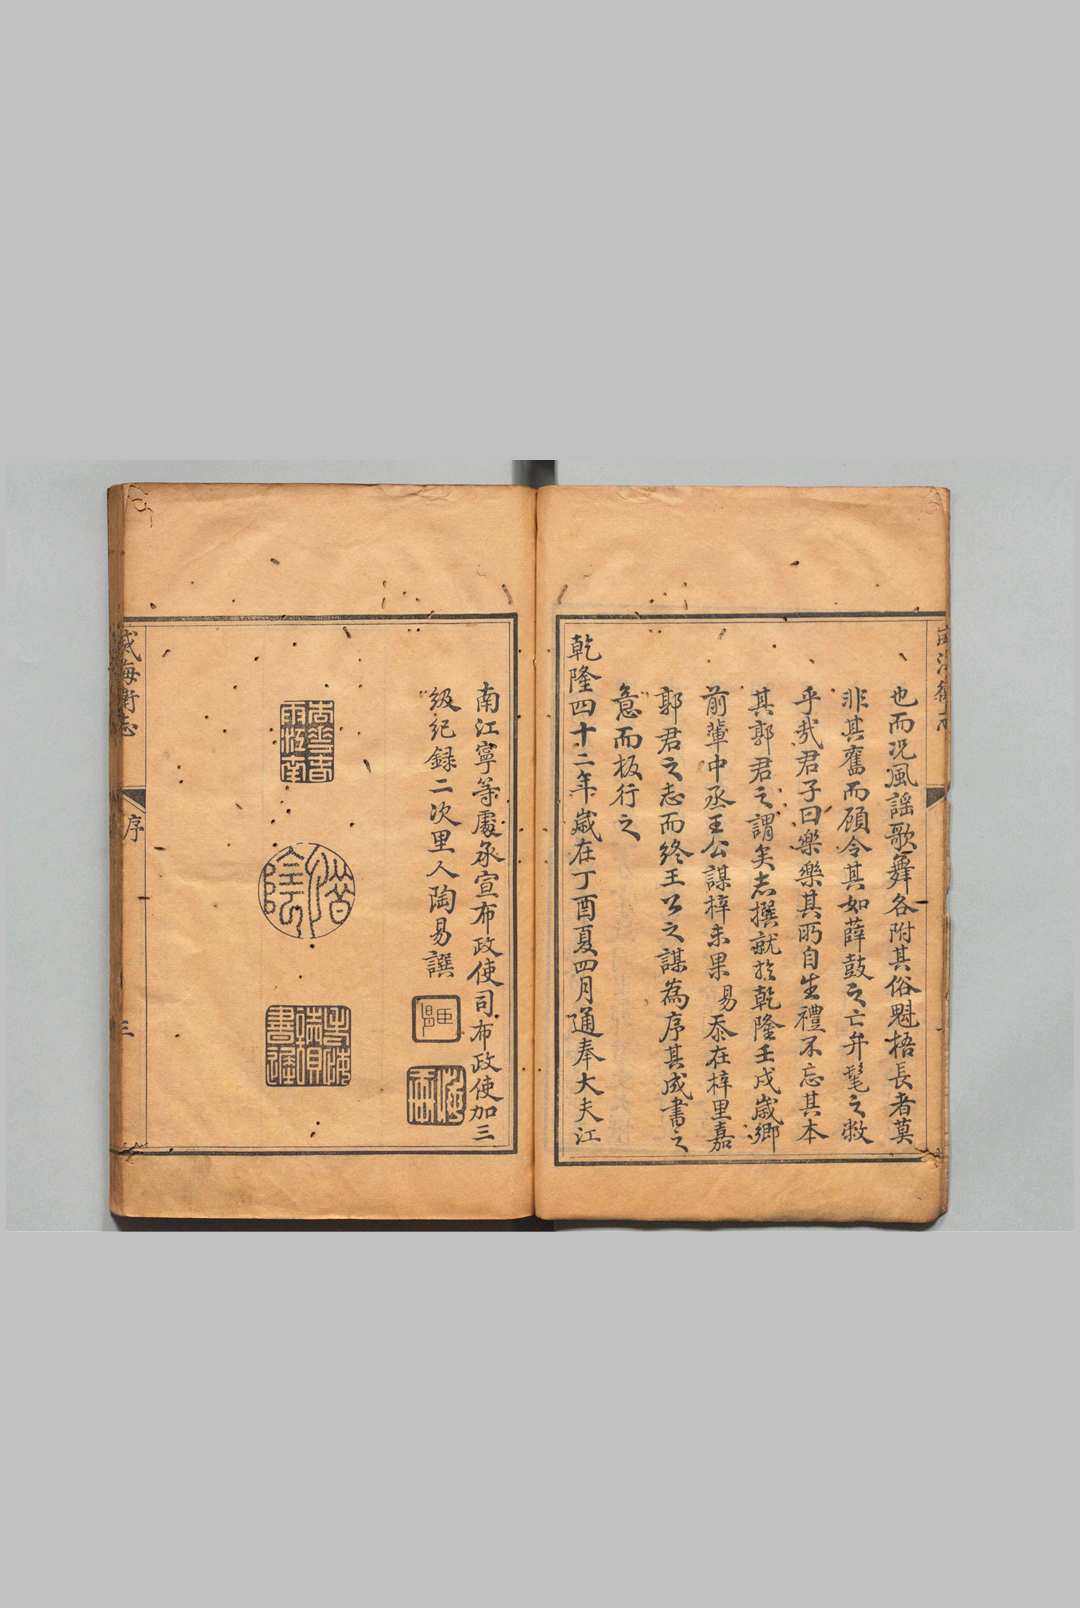 也而况風謡歌舞各附其俗魁梧長者莫
非其舊而顧令其如薛鼓之亡弁髦之敝
乎㢤君子曰樂樂其所自生禮不忘其本
其郭君之謂矣志撰就於乾隆壬戌歲鄉
前輩中丞王公謀梓未果易忝在梓里嘉
郭君之志而終王公之謀為序其成書之
意而板行之
乾隆四十二年歲在丁酉夏四月通奉大夫江
南江寧等處承宣布政使司布政使加三
級紀録二次里人陶易譔
威海衛志
序
三